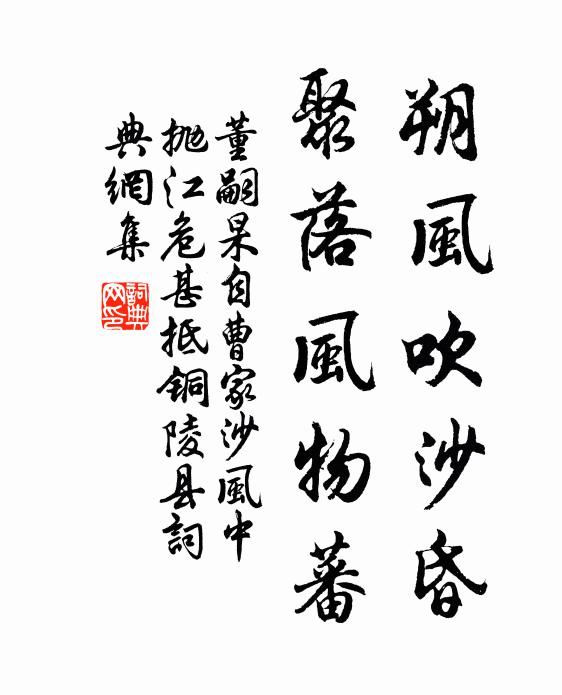 朔風吹沙昏
聚落風物蕃
董嗣杲自曹家沙風中
抛江危甚抵铜陵县詞
典網集
詞典
网印